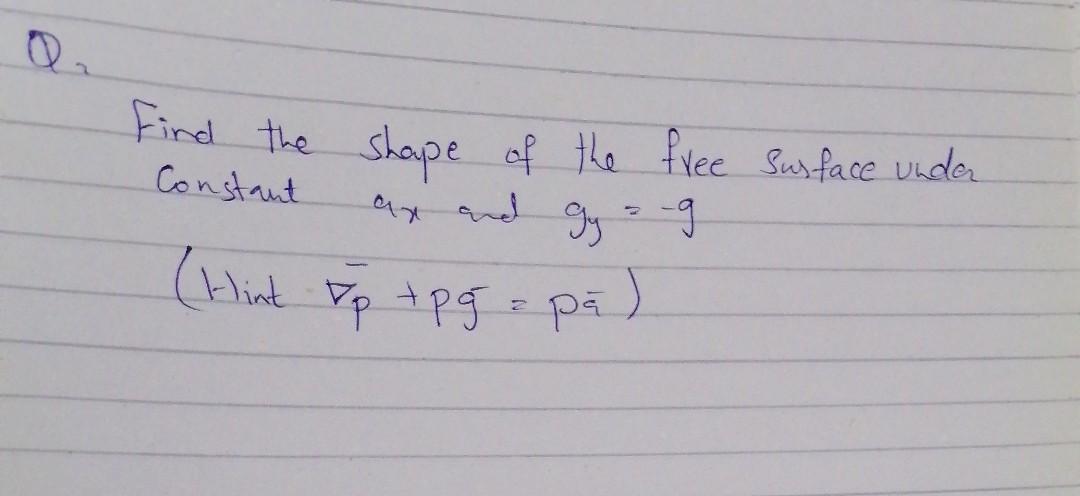 Q.
Find the shape of the free surface under
Constant ax and gy = -g
(Hint ∇̄p + ρḡ = ρā)